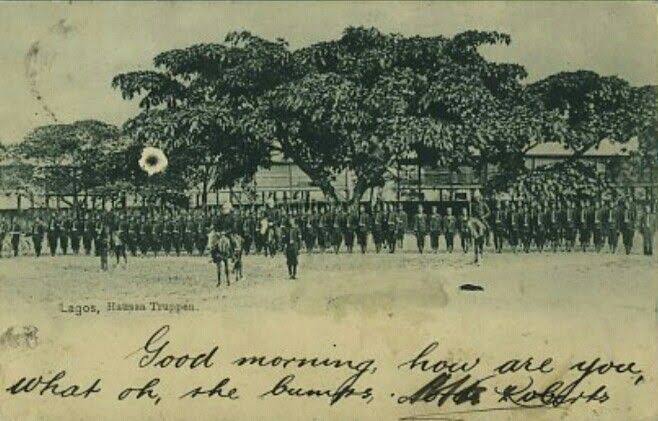 Lagos, Haussa Truppen.
Good morning, how are you,
what oh, she bumps, Roberts